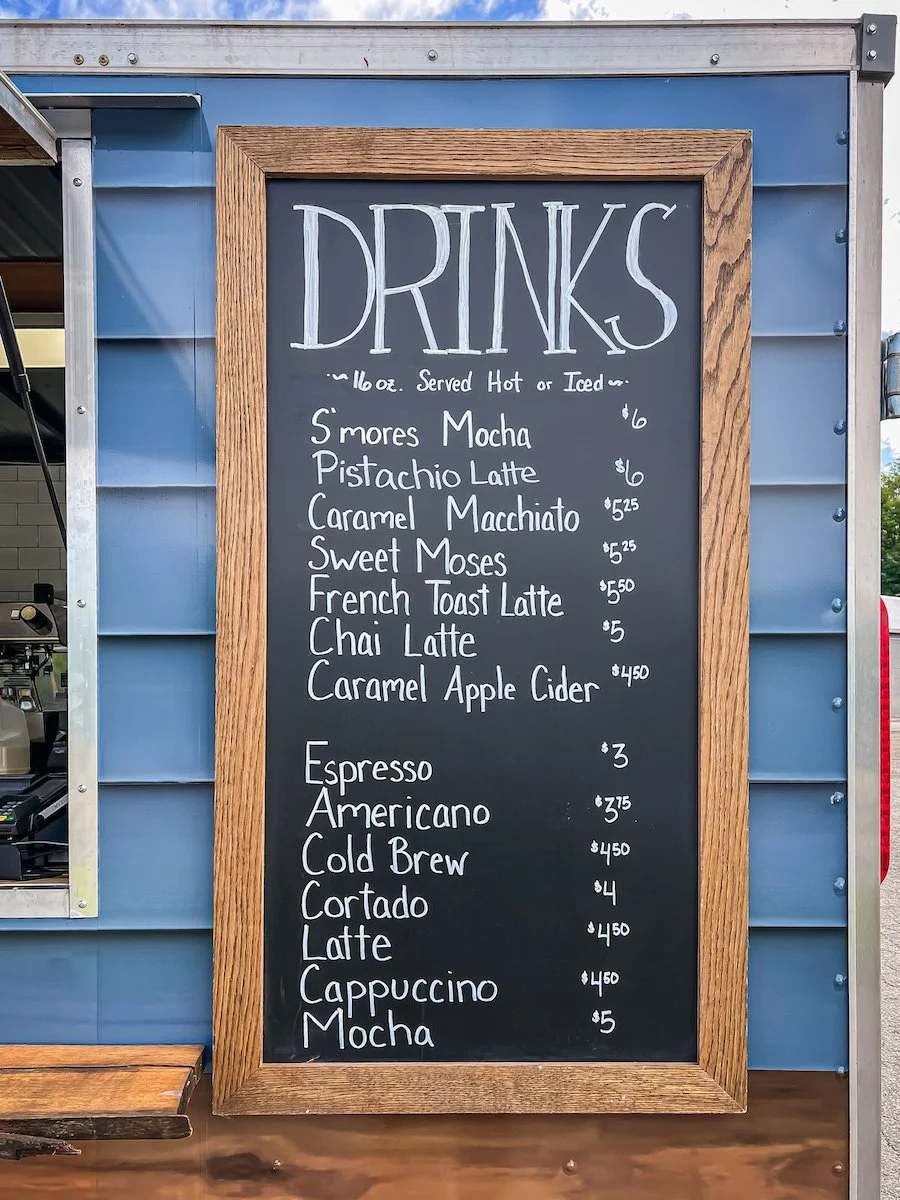 DRINKS
~16 oz. Served Hot or Iced~
S'mores Mocha $6
Pistachio Latte $6
Caramel Macchiato $5.25
Sweet Moses $5.25
French Toast Latte $5.50
Chai Latte $5
Caramel Apple Cider $4.50
Espresso $3
Americano $3.75
Cold Brew $4.50
Cortado $4
Latte $4.50
Cappuccino $4.50
Mocha $5